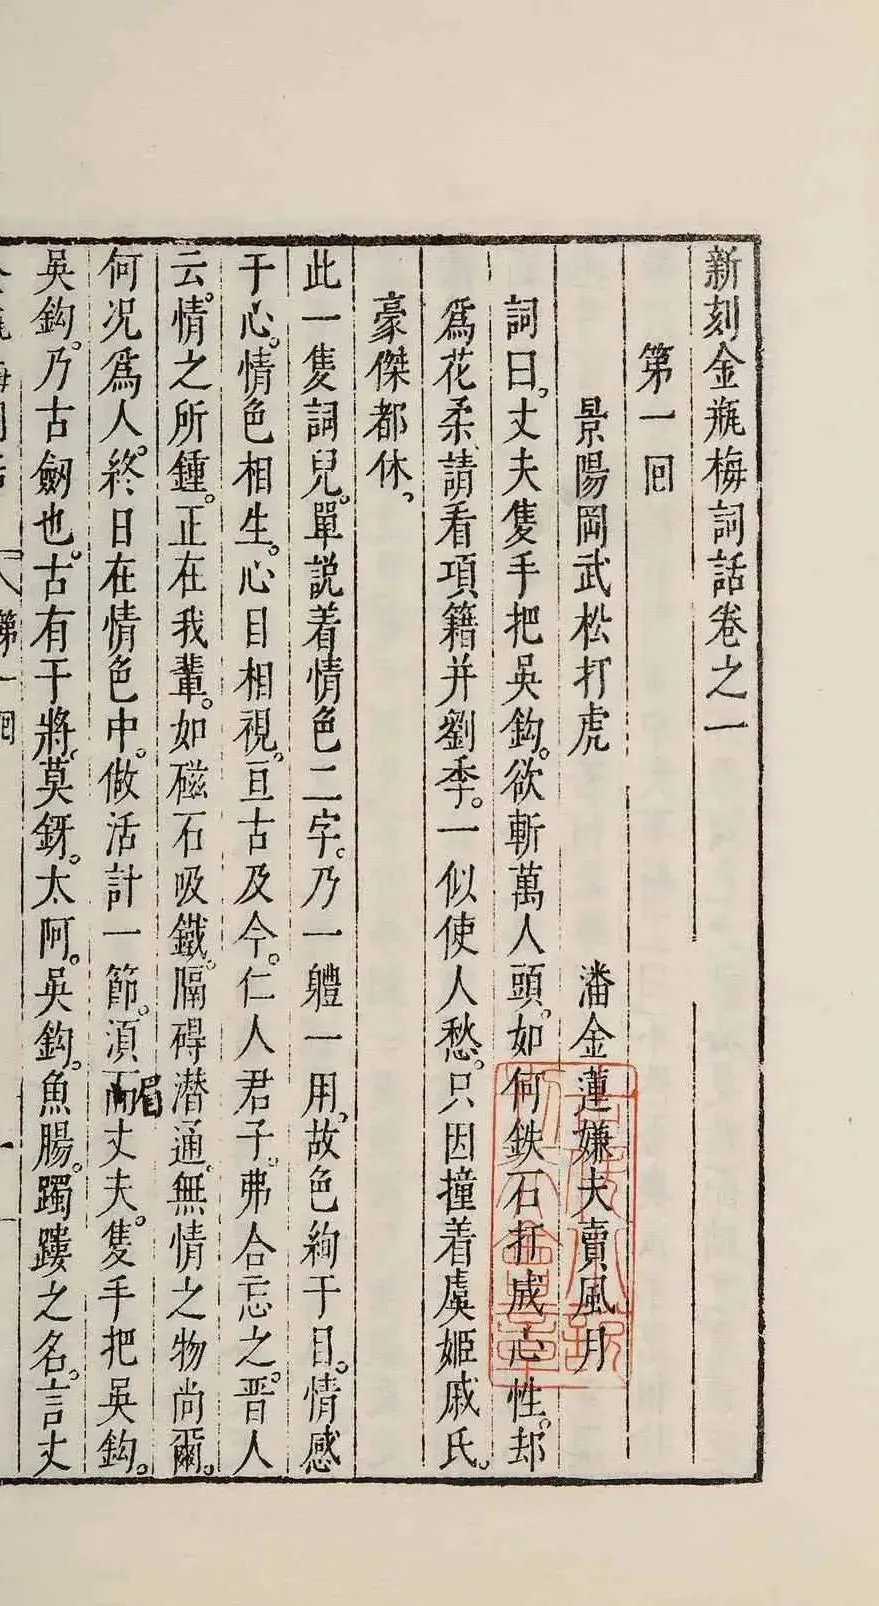 新刻金瓶梅詞話卷之一
第一回
景陽岡武松打虎　潘金蓮嫌夫賣風月
詞曰。丈夫隻手把吳鈎。欲斬萬人頭。如何鉄石打成心性。却
爲花柔。請看項籍并劉季。一似使人愁。只因撞着虞姬戚氏。
豪傑都休。
此一隻詞兒。單説着情色二字。乃一體一用。故色絢于目。情感
于心。情色相生。心目相視。亘古及今。仁人君子。弗合忘之。晋人
云。情之所鍾。正在我輩。如磁石吸鐵。隔碍潜通。無情之物尚爾。
何况爲人。終日在情色中。做活計一節。須眉丈夫。隻手把吳鈎。
吳鈎。乃古劒也。古有干將。莫釾。太阿。吳鈎。魚腸。躅䠱之名。言丈
第一回